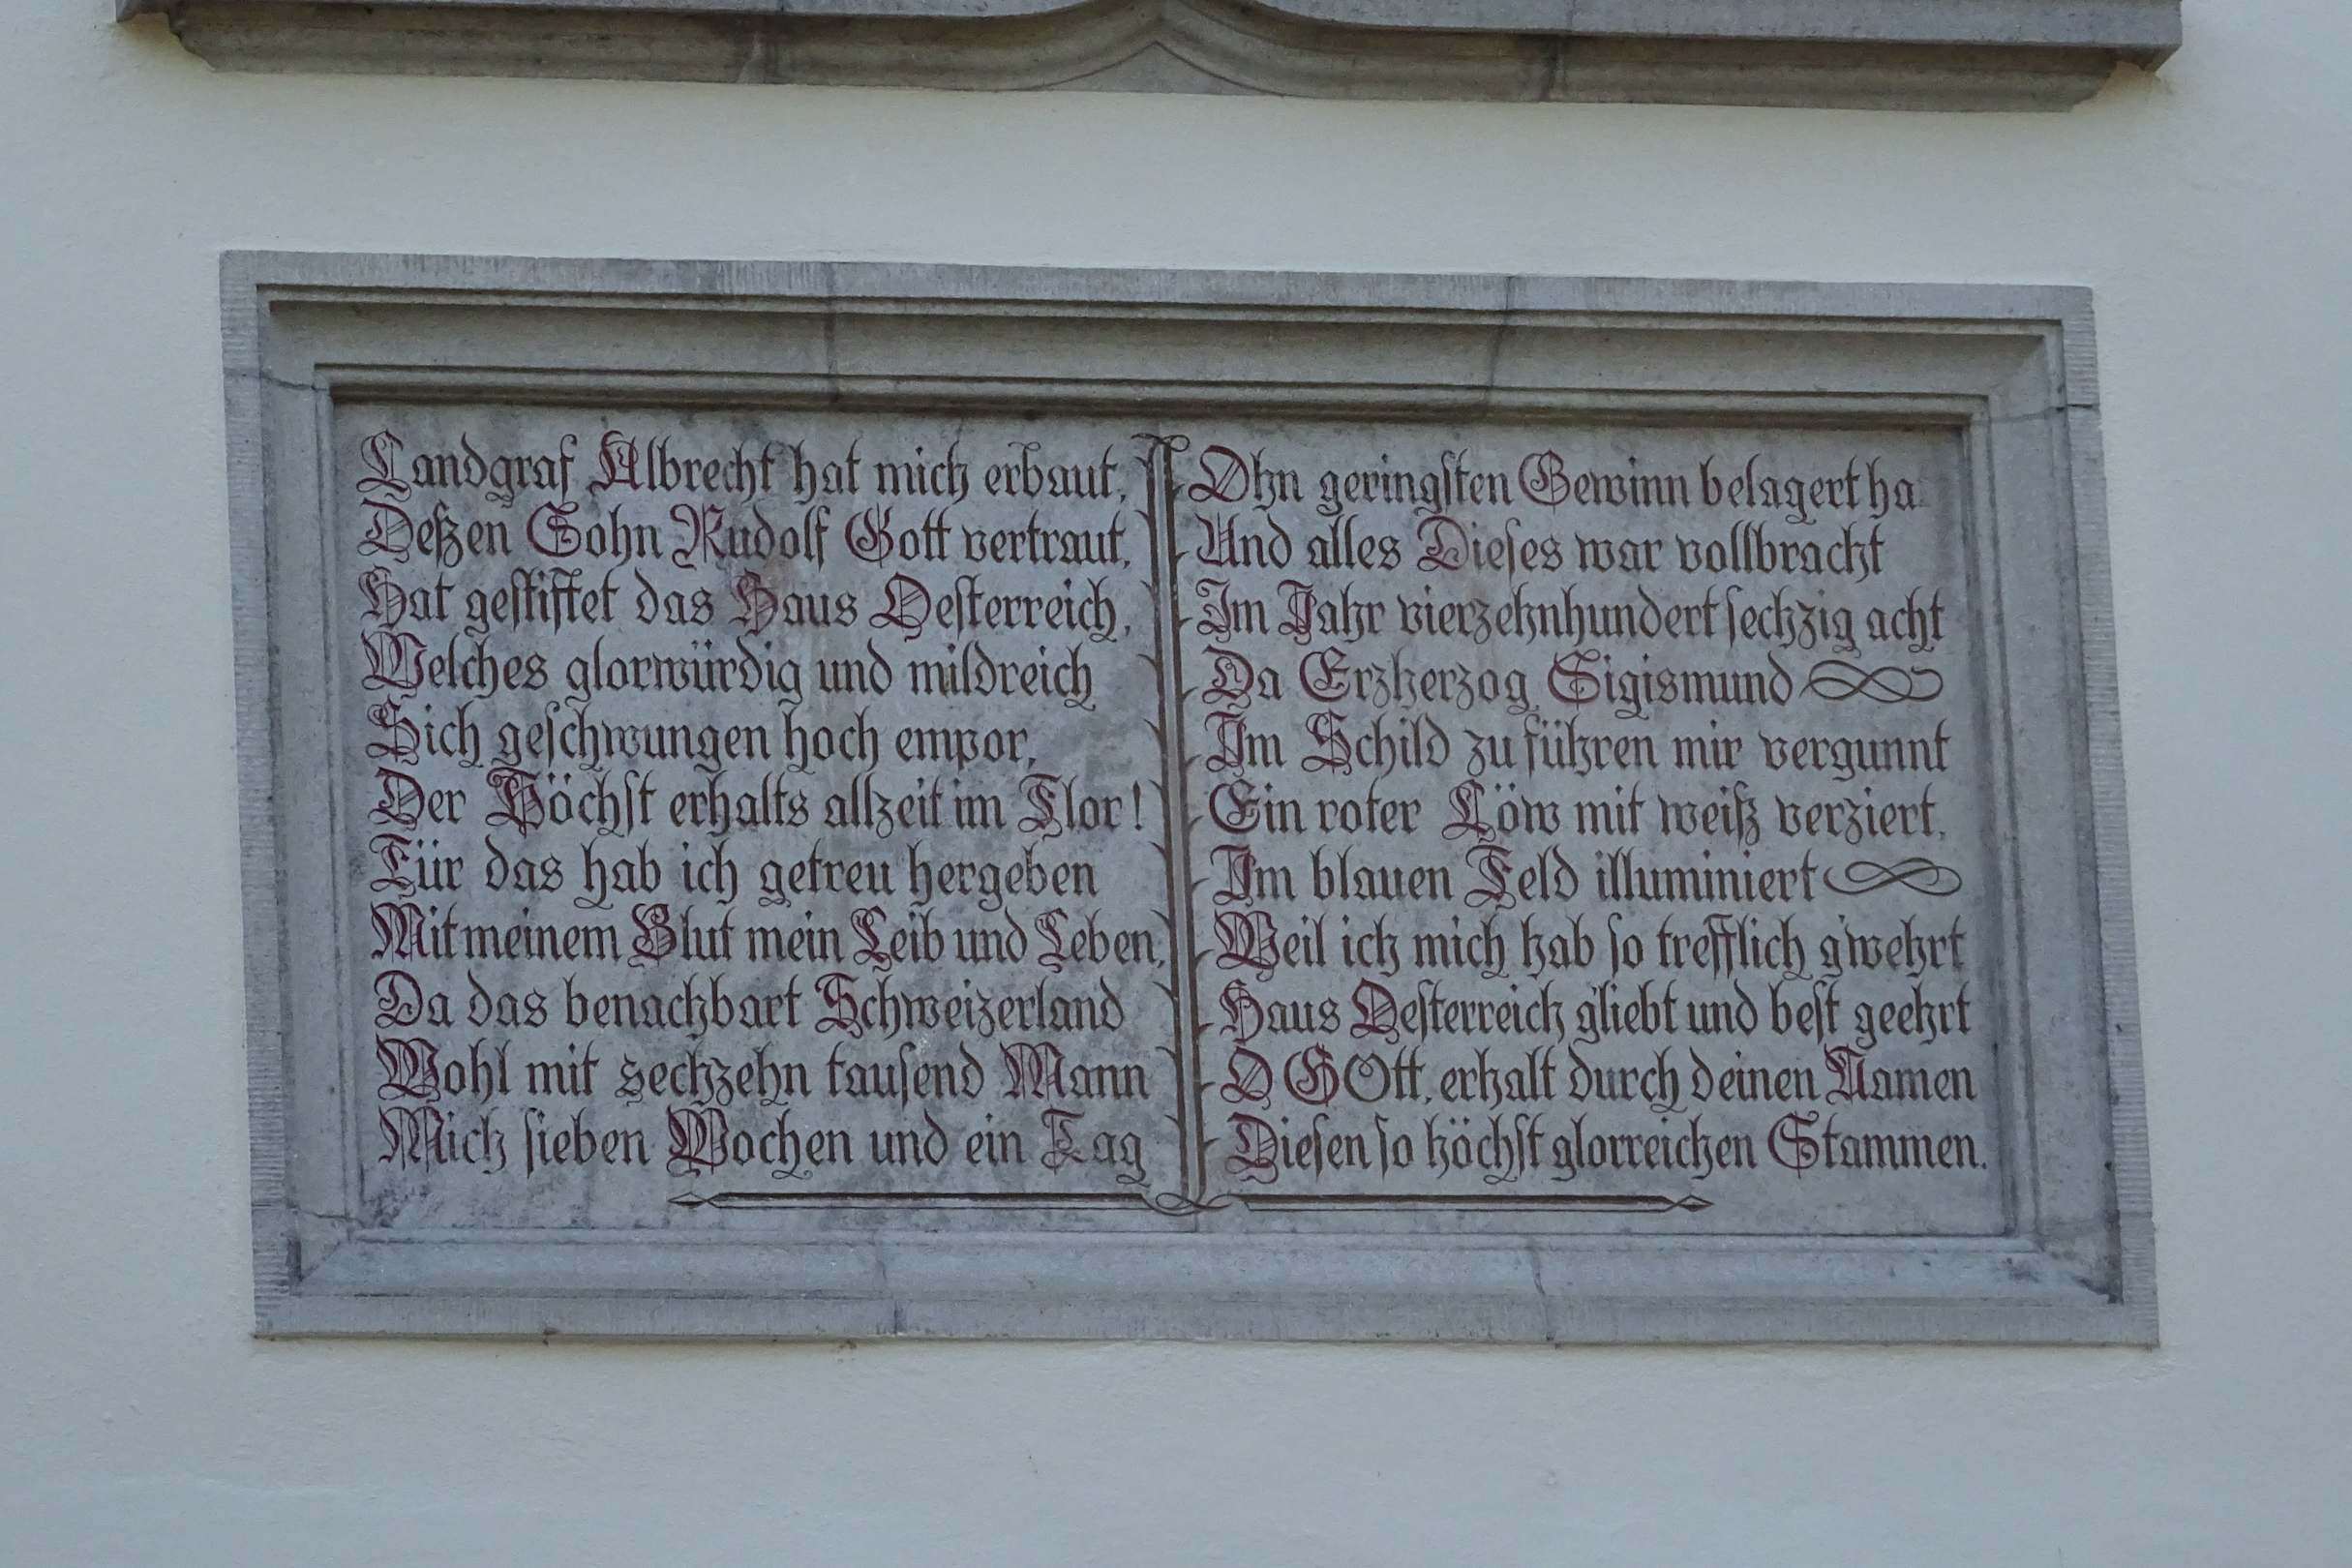 Landgraf Albrecht hat mich erbaut,
Deßen Sohn Rudolf Gott vertraut,
Hat gestiftet das Haus Oesterreich,
Welches glorwürdig und mildreich
Sich geschwungen hoch empor,
Der Höchst erhalts allzeit im Flor!
Für das hab ich getreu hergeben
Mit meinem Blut mein Leib und Leben,
Da das benachbart Schweizerland
Wohl mit sechzehn tausend Mann
Mich sieben Wochen und ein Tag
Ohn geringsten Gewinn belagert ha
Und alles Dieses war vollbracht
Im Jahr vierzehnhundert sechzig acht
Da Erzherzog Sigismund
Im Schild zu führen mir vergunnt
Ein roter Löw mit weiß verziert,
Im blauen Feld illuminiert
Weil ich mich hab so trefflich g'wehrt
Haus Oesterreich g'liebt und best geehrt
O GOtt, erhalt durch deinen Namen
Diesen so höchst glorreichen Stammen.